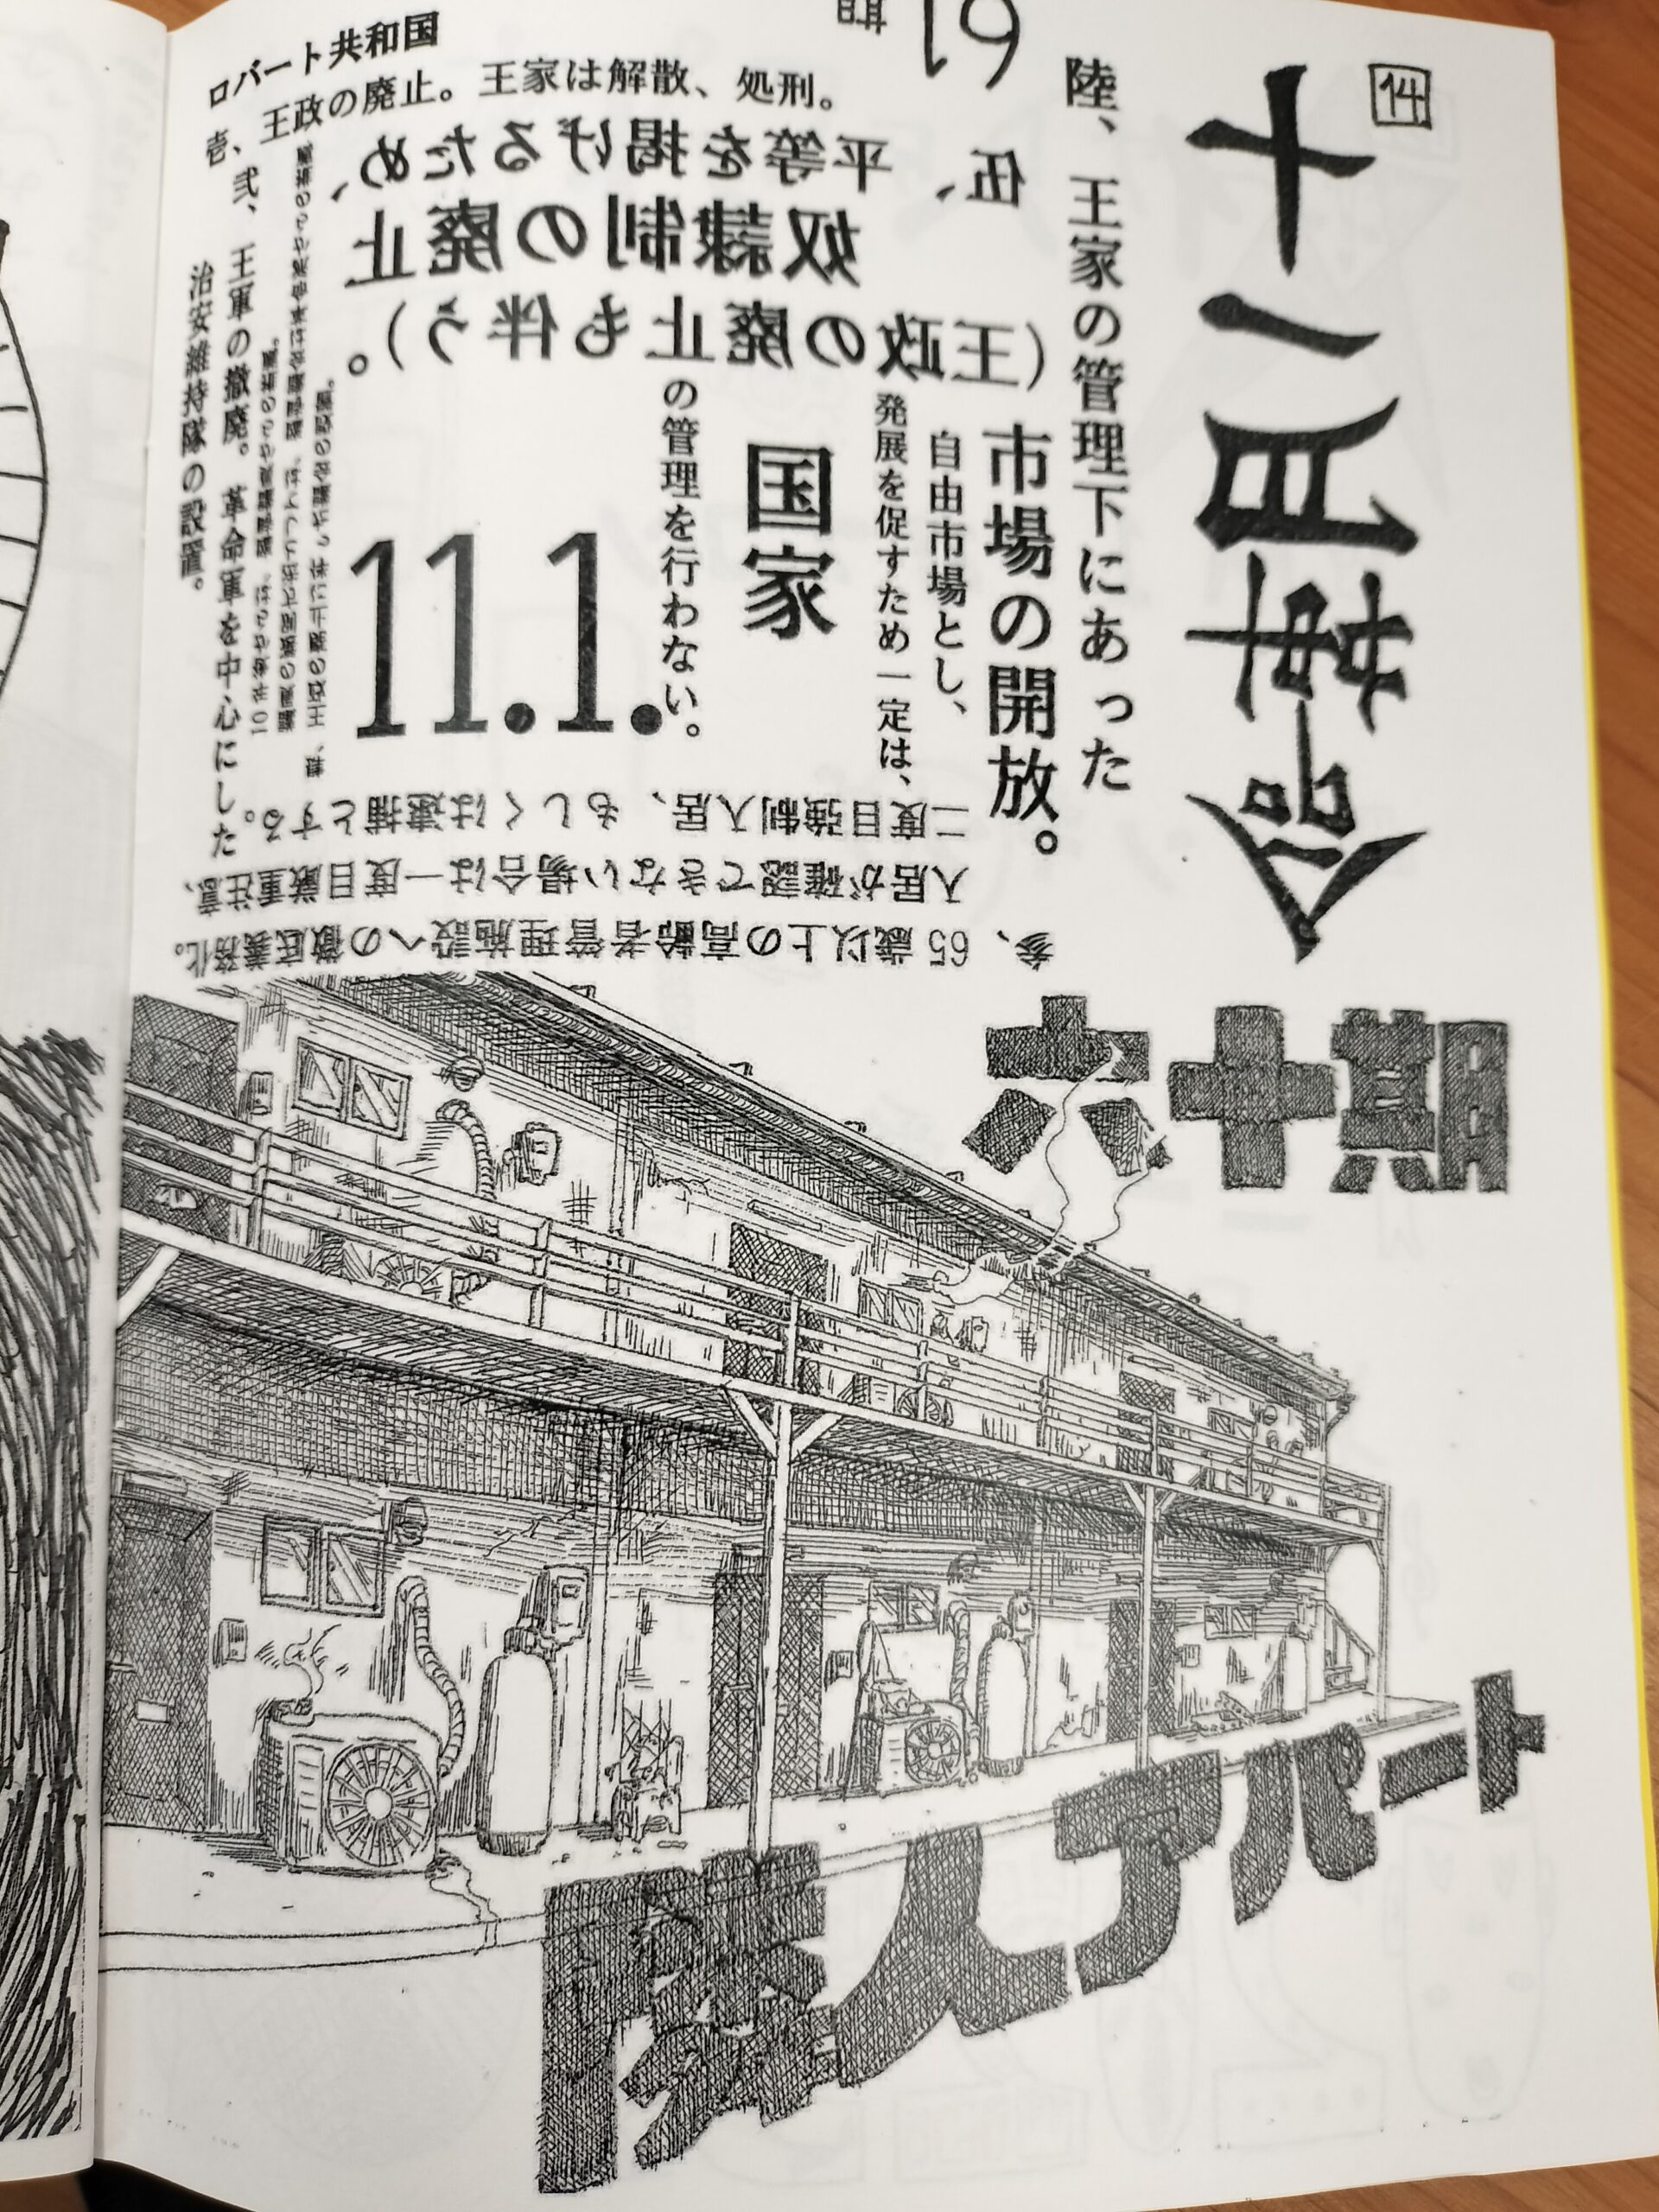 件
十一月革命
陸、王家の管理下にあった
市場の開放。
自由市場とし、
発展を促すため一定は、
国家
の管理を行わない。
11.1.
ロバート共和国
壱、王政の廃止。王家は解散、処刑。
弐、王軍の撤廃。革命軍を中心にした
治安維持隊の設置。
参、65歳以上の高齢者管理施設への徹底義務化。
入居が確認できない場合は一度目厳重注意、
二度目強制入居、もしくは逮捕とする。
肆、王政の廃止に伴った議会の設置。
伍、平等を掲げるため、
奴隷制の廃止
(王政の廃止も伴う)。
六十期
隣人アパート